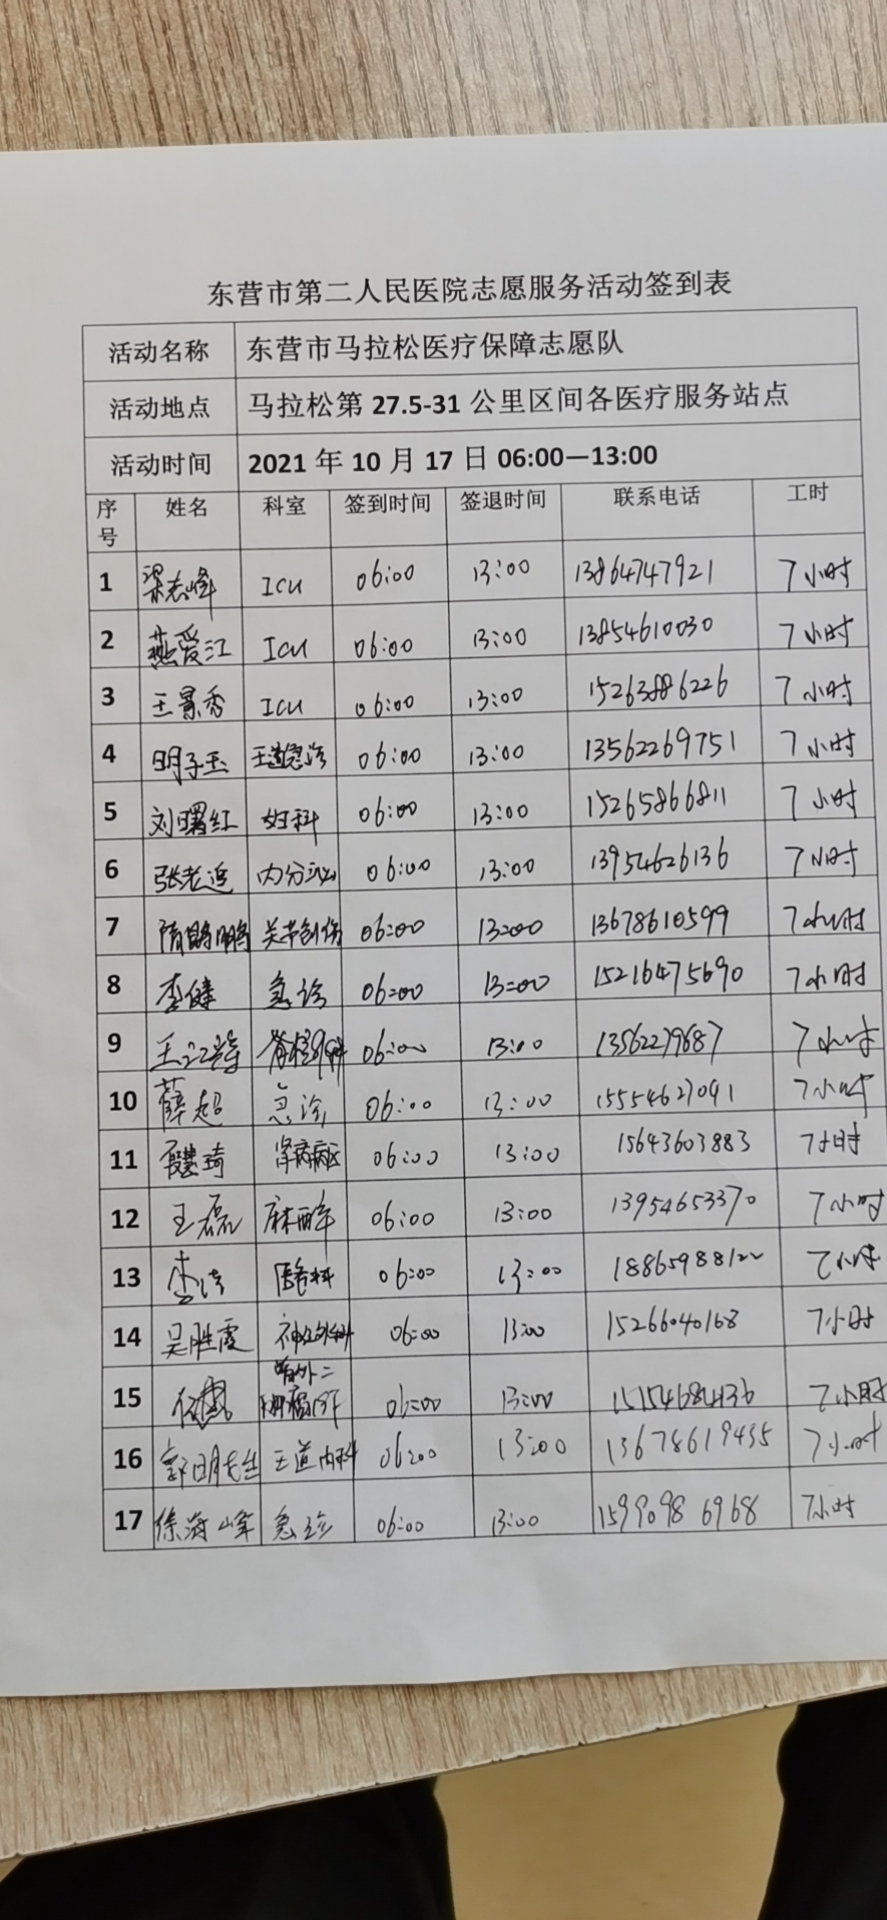 东营市第二人民医院志愿服务活动签到表
活动名称 东营市马拉松医疗保障志愿队
活动地点 马拉松第 27.5-31 公里区间各医疗服务站点
活动时间 2021 年 10 月 17 日 06:00—13:00
序号 姓名 科室 签到时间 签退时间 联系电话 工时
1 梁志峰 ICU 06:00 13:00 13864747921 7小时
2 燕爱江 ICU 06:00 13:00 13854610030 7小时
3 王景秀 ICU 06:00 13:00 15263886226 7小时
4 明子玉 06:00 13:00 13562269751 7小时
5 刘曙红 妇科 06:00 13:00 15265866811 7小时
6 内分泌 06:00 13:00 13954626136 7小时
7 隋鹏鹏 关节创伤 06:00 13:00 13678610599 7小时
8 李健 急诊 06:00 13:00 15216475690 7小时
9 06:00 13:00 13562279687 7小时
10 薛超 急诊 06:00 13:00 15554627091 7小时
11 06:00 13:00 15643603883 7小时
12 王磊 麻醉 06:00 13:00 13954653370 7小时
13 06:00 13:00 7小时
14 吴胜霞 神经外科 06:00 13:00 15266040168 7小时
15 06:00 13:00 7小时
16 王道内科 06:00 13:00 13678619455 7小时
17 徐海峰 急诊 06:00 13:00 15990986968 7小时